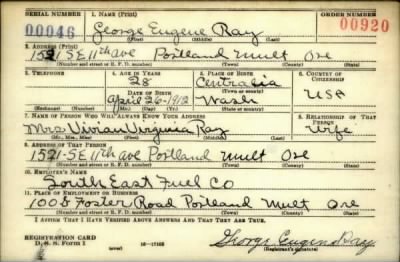 SERIAL NUMBER 1. NAME (Print) ORDER NUMBER
00046 George Eugene Ray 00920
(First) (Middle) (Last)
2. ADDRESS (Print)
1521 SE 11th ave Portland Mult Ore
(Number and street or R. F. D. number) (Town) (County) (State)
3. TELEPHONE 4. AGE IN YEARS 5. PLACE OF BIRTH 6. COUNTRY OF CITIZENSHIP
28 Centralia
(Town or county)
DATE OF BIRTH
April 26-1912 Wash USA
(Exchange) (Number) (Mo.) (Day) (Yr.) (State or country)
7. NAME OF PERSON WHO WILL ALWAYS KNOW YOUR ADDRESS 8. RELATIONSHIP OF THAT PERSON
Mrs. Vivian Virginia Ray Wife
(Mr., Mrs., Miss) (First) (Middle) (Last)
9. ADDRESS OF THAT PERSON
1521 SE 11th ave Portland Mult Ore
(Number and street or R. F. D. number) (Town) (County) (State)
10. EMPLOYER'S NAME
South East Fuel Co
11. PLACE OF EMPLOYMENT OR BUSINESS
Foster Road Portland Mult Ore
(Number and street or R. F. D. number) (Town) (County) (State)
I AFFIRM THAT I HAVE VERIFIED ABOVE ANSWERS AND THAT THEY ARE TRUE.
REGISTRATION CARD
D. S. S. Form 1 George Eugene Ray
(over) (Registrant's signature)